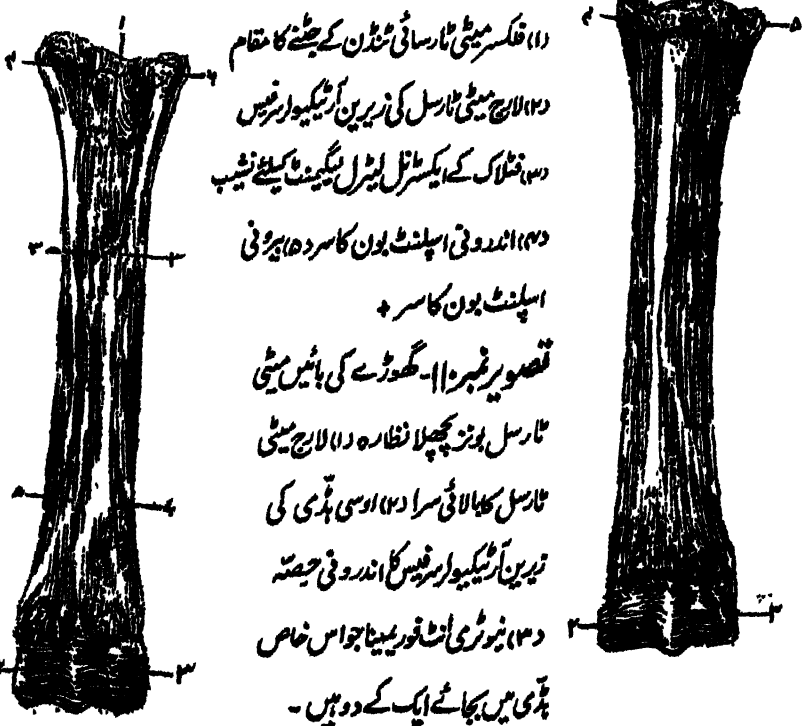 (۱) فلکسر میٹی ٹارسائی ٹنڈن کے جٹنے کا مقام
(۲) لارج میٹی ٹارسل کی زیرین آرٹیکیولر سرفیس
(۳) فٹلاک کے ایکسٹرنل لیٹرل لیگیمنٹ کیلئے نشیب
(۴) اندرونی اسپلنٹ بون کا سر (۵) بیرونی
اسپلنٹ بون کا سر +
تصویر نمبر۱۱۰۔ گھوڑے کی بائیں میٹی
ٹارسل بونز پچھلا نظارہ (۱) لارج میٹی
ٹارسل کا بالائی سرا (۲) اوسی ہڈی کی
زیرین آرٹیکیولر سرفیس کا اندرونی حصّہ
(۳) نیوٹری انٹ فوریمینا جو اس خاص
ہڈّی میں بجائے ایک کے دو ہیں ۔
۱
۳
۳
۵
۳
۴
۵
۲
۳